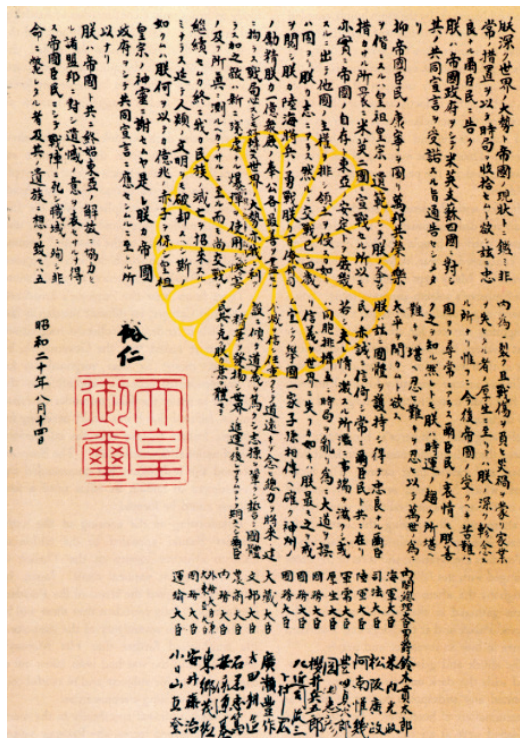 朕深ク世界ノ大勢ト帝國ノ現狀トニ鑑ミ非
常ノ措置ヲ以テ時局ヲ收拾セムト欲シ茲ニ忠
良ナル爾臣民ニ告ク
朕ハ帝國政府ヲシテ米英支蘇四國ニ對シ
其ノ共同宣言ヲ受諾スル旨通告セシメタ
リ
抑〻帝國臣民ノ康寧ヲ圖リ萬邦共榮ノ樂
ヲ偕ニスルハ皇祖皇宗ノ遺範ニシテ朕ノ拳々
措カサル所曩ニ米英二國ニ宣戰セル所以モ
亦實ニ帝國ノ自存ト東亞ノ安定トヲ庶幾
スルニ出テ他國ノ主權ヲ排シ領土ヲ侵スカ如キ
ハ固ヨリ朕カ志ニアラス然ルニ交戰已ニ四歲
ヲ閱シ朕カ陸海將兵ノ勇戰朕カ百僚有司
ノ勵精朕カ一億衆庶ノ奉公各〻最善ヲ盡セル
ニ拘ラス戰局必スシモ好轉セス世界ノ大勢亦我ニ利
アラス加之敵ハ新ニ殘虐ナル爆彈ヲ使用シテ慘害
ノ及フ所眞ニ測ルヘカラサルニ至ル而モ尚交戰ヲ
繼續セムカ終ニ我カ民族ノ滅亡ヲ招來スルノ
ミナラス延テ人類ノ文明ヲモ破却スヘシ斯ノ
如クムハ朕何ヲ以テカ億兆ノ赤子ヲ保シ皇祖
皇宗ノ神靈ニ謝セムヤ是レ朕カ帝國
政府ヲシテ共同宣言ニ應セシムルニ至レル所
以ナリ
朕ハ帝國ト共ニ終始東亞ノ解放ニ協力セ
ル諸盟邦ニ對シ遺憾ノ意ヲ表セサルヲ得
ス帝國臣民ニシテ戰陣ニ死シ職域ニ殉シ非
命ニ斃レタル者及其ノ遺族ニ想ヲ致セハ五
内爲ニ裂ク且戰傷ヲ負ヒ災禍ヲ蒙リ家業
ヲ失ヒタル者ノ厚生ニ至リテハ朕ノ深ク軫念ス
ル所ナリ惟フニ今後帝國ノ受クヘキ苦難ハ
固ヨリ尋常ニアラス爾臣民ノ衷情モ朕善ク
之ヲ知ル然レトモ朕ハ時運ノ趨ク所堪ヘ
難キヲ堪ヘ忍ヒ難キヲ忍ヒ以テ萬世ノ爲ニ
太平ヲ開カムト欲ス
朕ハ茲ニ國體ヲ護持シ得テ忠良ナル爾臣
民ノ赤誠ニ信倚シ常ニ爾臣民ト共ニ在リ
若シ夫レ情ノ激スル所濫ニ事端ヲ滋クシ或
ハ同胞排擠互ニ時局ヲ亂リ爲ニ大道ヲ誤
リ信義ヲ世界ニ失フカ如キハ朕最モ之ヲ戒ム
宜シク擧國一家子孫相傳ヘ確ク神州ノ
不滅ヲ信シ任重クシテ道遠キヲ念ヒ總力ヲ將來ノ建
設ニ傾ケ道義ヲ篤クシ志操ヲ鞏クシ誓テ國體
ノ精華ヲ發揚シ世界ノ進運ニ後レサラムコトヲ期スヘシ爾臣
民其レ克ク朕カ意ヲ體セヨ
裕仁
天皇御璽
昭和二十年八月十四日
内閣總理大臣男爵鈴木貫太郎
海軍大臣 米内光政
司法大臣 松阪廣政
陸軍大臣 阿南惟幾
軍需大臣 豊田貞次郎
厚生大臣 岡田忠彦
國務大臣 櫻井兵五郎
國務大臣 左近司政三
國務大臣 下村宏
大藏大臣 廣瀬豊作
文部大臣 太田耕造
農商大臣 石黒忠篤
内務大臣 安倍源基
外務大臣兼大東亞大臣 東郷茂徳
國務大臣 安井藤治
運輸大臣 小日山直登